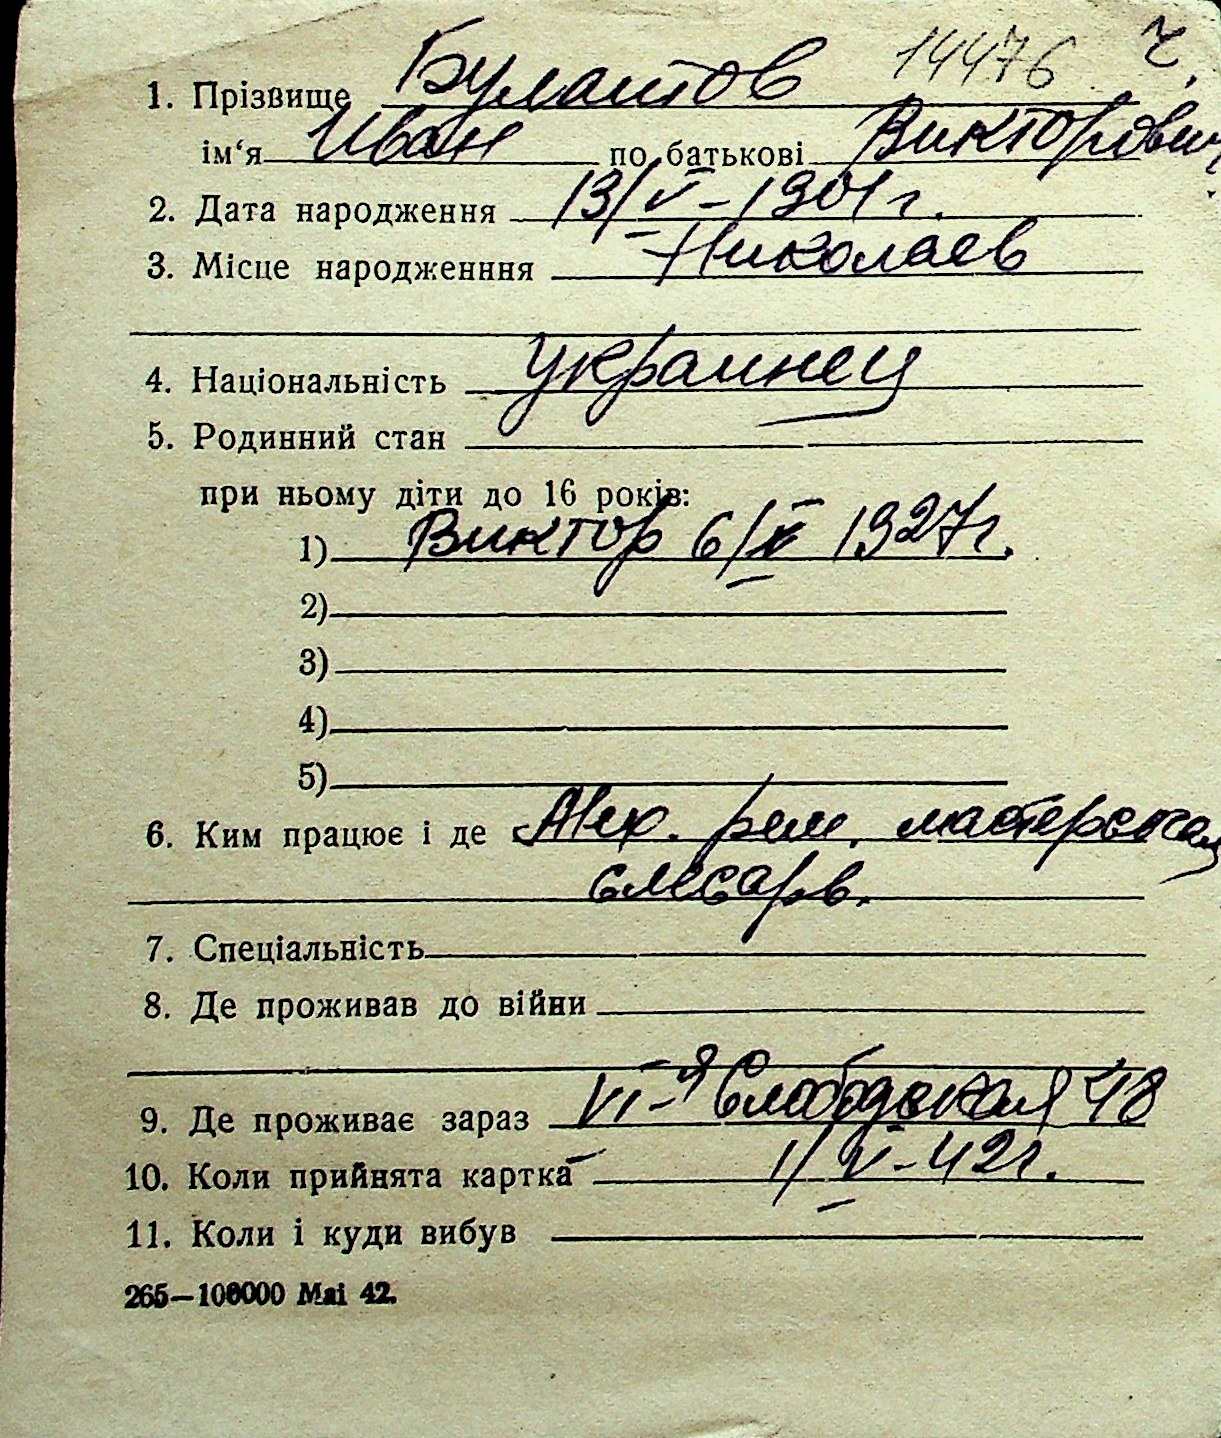 14476 Ч.
1. Прізвище Булатов
ім‘я Иван по батькові Викторович
2. Дата народження 13/V – 1901 г.
3. Місце народженння Николаев
4. Національність украинец
5. Родинний стан
при ньому діти до 16 років:
1) Виктор 6/V 1927 г.
2)
3)
4)
5)
6. Ким працює і де Мех. рем. мастерская
слесарь.
7. Спеціальність
8. Де проживав до війни
9. Де проживає зараз VI-я Слободская 48
10. Коли прийнята картка 1/V – 42 г.
11. Коли і куди вибув
265—100000 Mai 42.